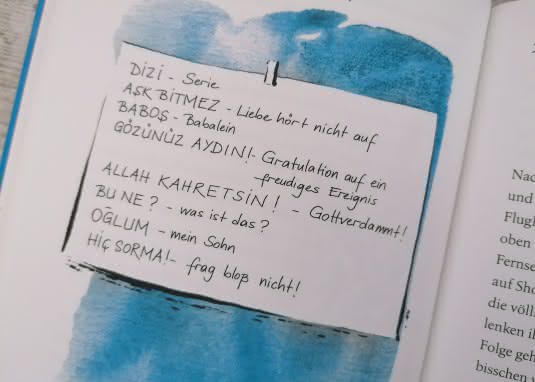 DIZI - Serie
AŞK BITMEZ - Liebe hört nicht auf
BABOŞ - Babalein
GÖZÜNÜZ AYDIN! - Gratulation auf ein
freudiges Ereignis
ALLAH KAHRETSIN! - Gottverdammt!
BU NE? - was ist das?
OĞLUM - mein Sohn
HIÇ SORMA! - frag bloß nicht!
Nac
und
Flugl
oben
Fernse
auf Sho
die völl
lenken ih
Folge geh
bisschen v